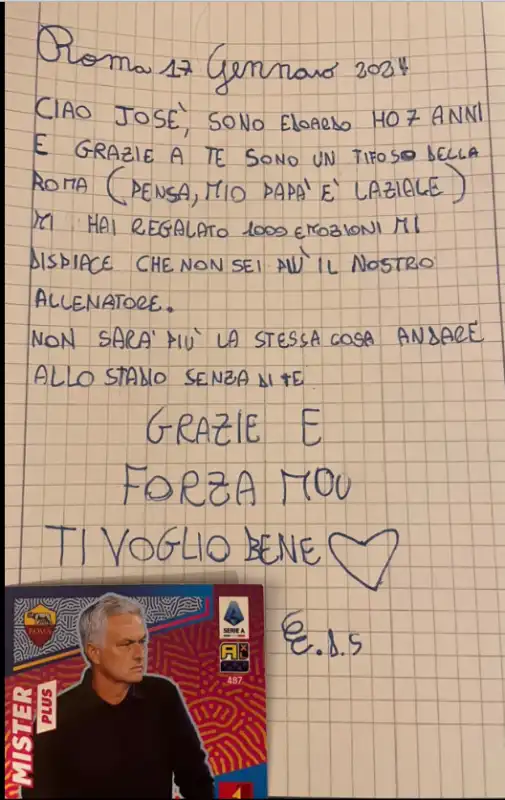 Roma 17 Gennaio 2024
CIAO JOSÈ, SONO EDOARDO HO 7 ANNI
E GRAZIE A TE SONO UN TIFOSO DELLA
ROMA (PENSA, MIO PAPA' E' LAZIALE)
MI HAI REGALATO 1000 EMOZIONI MI
DISPIACE CHE NON SEI PIU' IL NOSTRO
ALLENATORE.
NON SARA' PIU' LA STESSA COSA ANDARE
ALLO STADIO SENZA DI TE
GRAZIE E
FORZA MOU
TI VOGLIO BENE
E.D.S
ROMA
SERIE A
XL
487
MISTER
PLUS